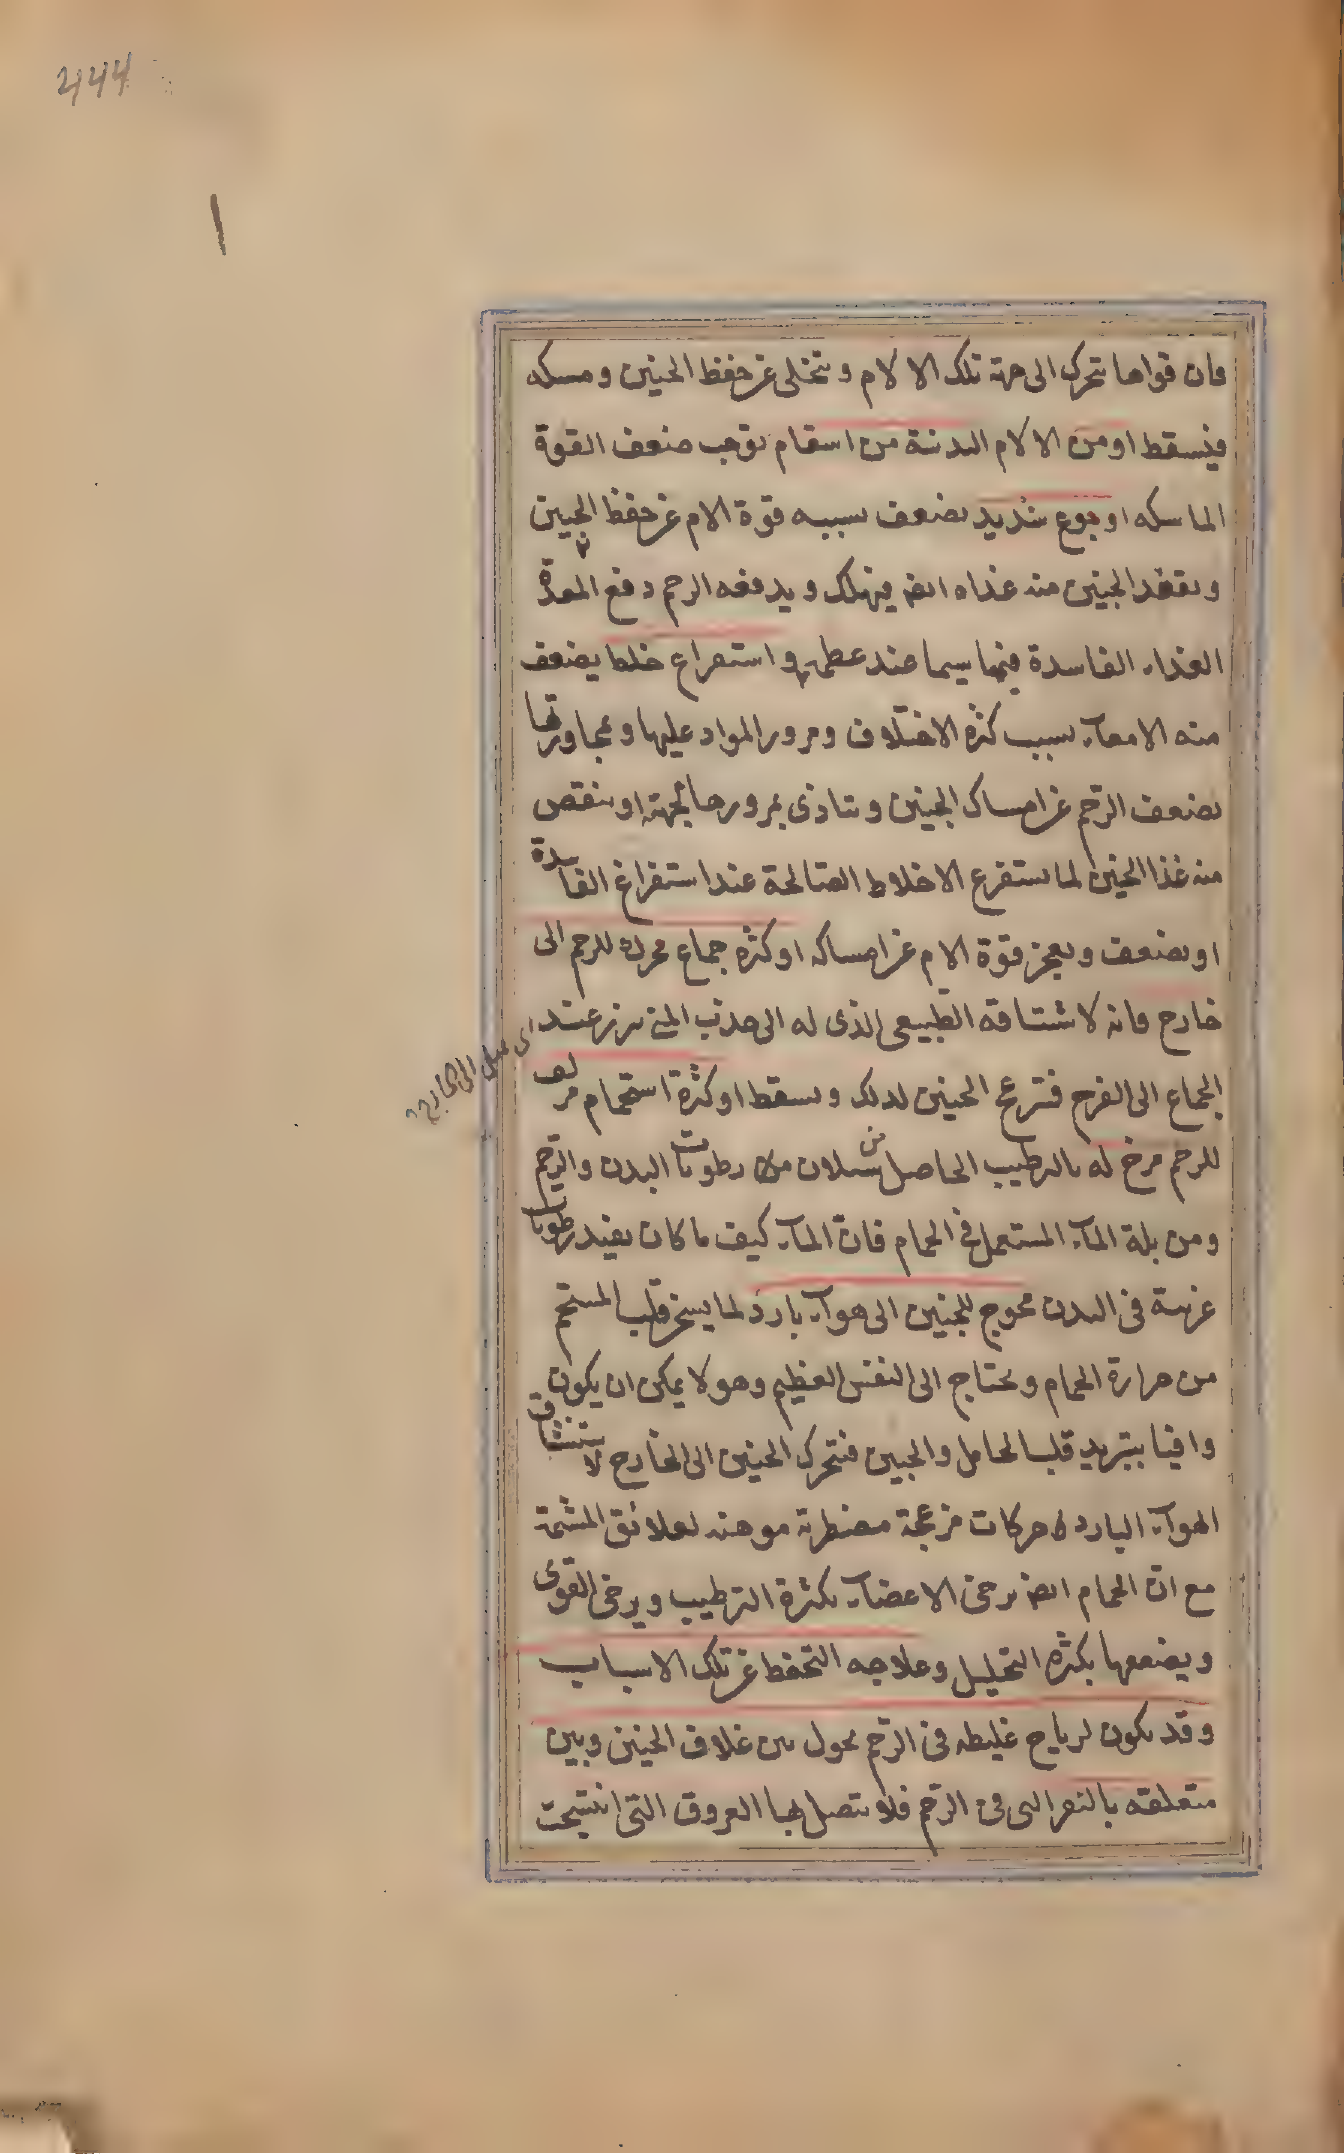 ۲۴۴
فان قواها تتحرك الى جهة تلك الالام و تتخلى عن حفظ الجنين و مسكه
فيسقط او من الالام البدنية من اسقام توجب ضعف القوة
الماسكه او جوع شديد يضعف بسببه قوة الام عن حفظ الجنين
و يفقد الجنين منه غذاه ايضا فيهلك و يدفعه الرحم دفع المعدة
الغذاء الفاسدة فيها سيما عند عظمه و استفراغ خلط يضعف
منه الامعآء بسبب كثرة الاختلاف و مرور المواد عليها و بمجاورتها
يضعف الرحم عن امساك الجنين و يتاذى بمرورها بجهته او ينقص
منه غذا الجنين لما يستفرغ الاخلاط الصالحة عند استفراغ الفاسدة
او يضعف و يعجز قوة الام عن امساكه او كثرة جماع محرك للرحم الى
خارج فانه لاشتياقه الطبيعى الذى له الى جذب المنى يبرز عند
اى يميل الى الخارج
الجماع الى الفرج فيزعج الجنين لذلك و يسقط او كثرة استحمام مزلق
للرحم مرخ له بالترطيب الحاصل من سيلان رطوبات البدن و الرحم
و من بلة المآء المستعمل فى الحمام فان المآء كيف ما كان يفيد رطوبات
غريبة فى البدن محوج للجنين الى هوآء بارد لما يسخن قلب المستحم
من حرارة الحمام و يحتاج الى النفس العظيم و هو لا يمكن ان يكون
وافيا بتبريد قلب الحامل و الجنين فيتحرك الجنين الى الخارج لاستنشاق
الهوآء البارد حركات مزعجة مضطربة موهنه لعلائق المشيمة
مع ان الحمام ايضا يرخى الاعضآء بكثرة الترطيب و يرخى القوى
و يضعفها بكثرة التحليل و علاجه التحفظ عن تلك الاسباب
و قد يكون لرياح غليظه فى الرحم يحول بين غلاف الجنين و بين
متعلقه بالنقر التى فى الرحم فلا يتصل بها العروق التى انتسجت